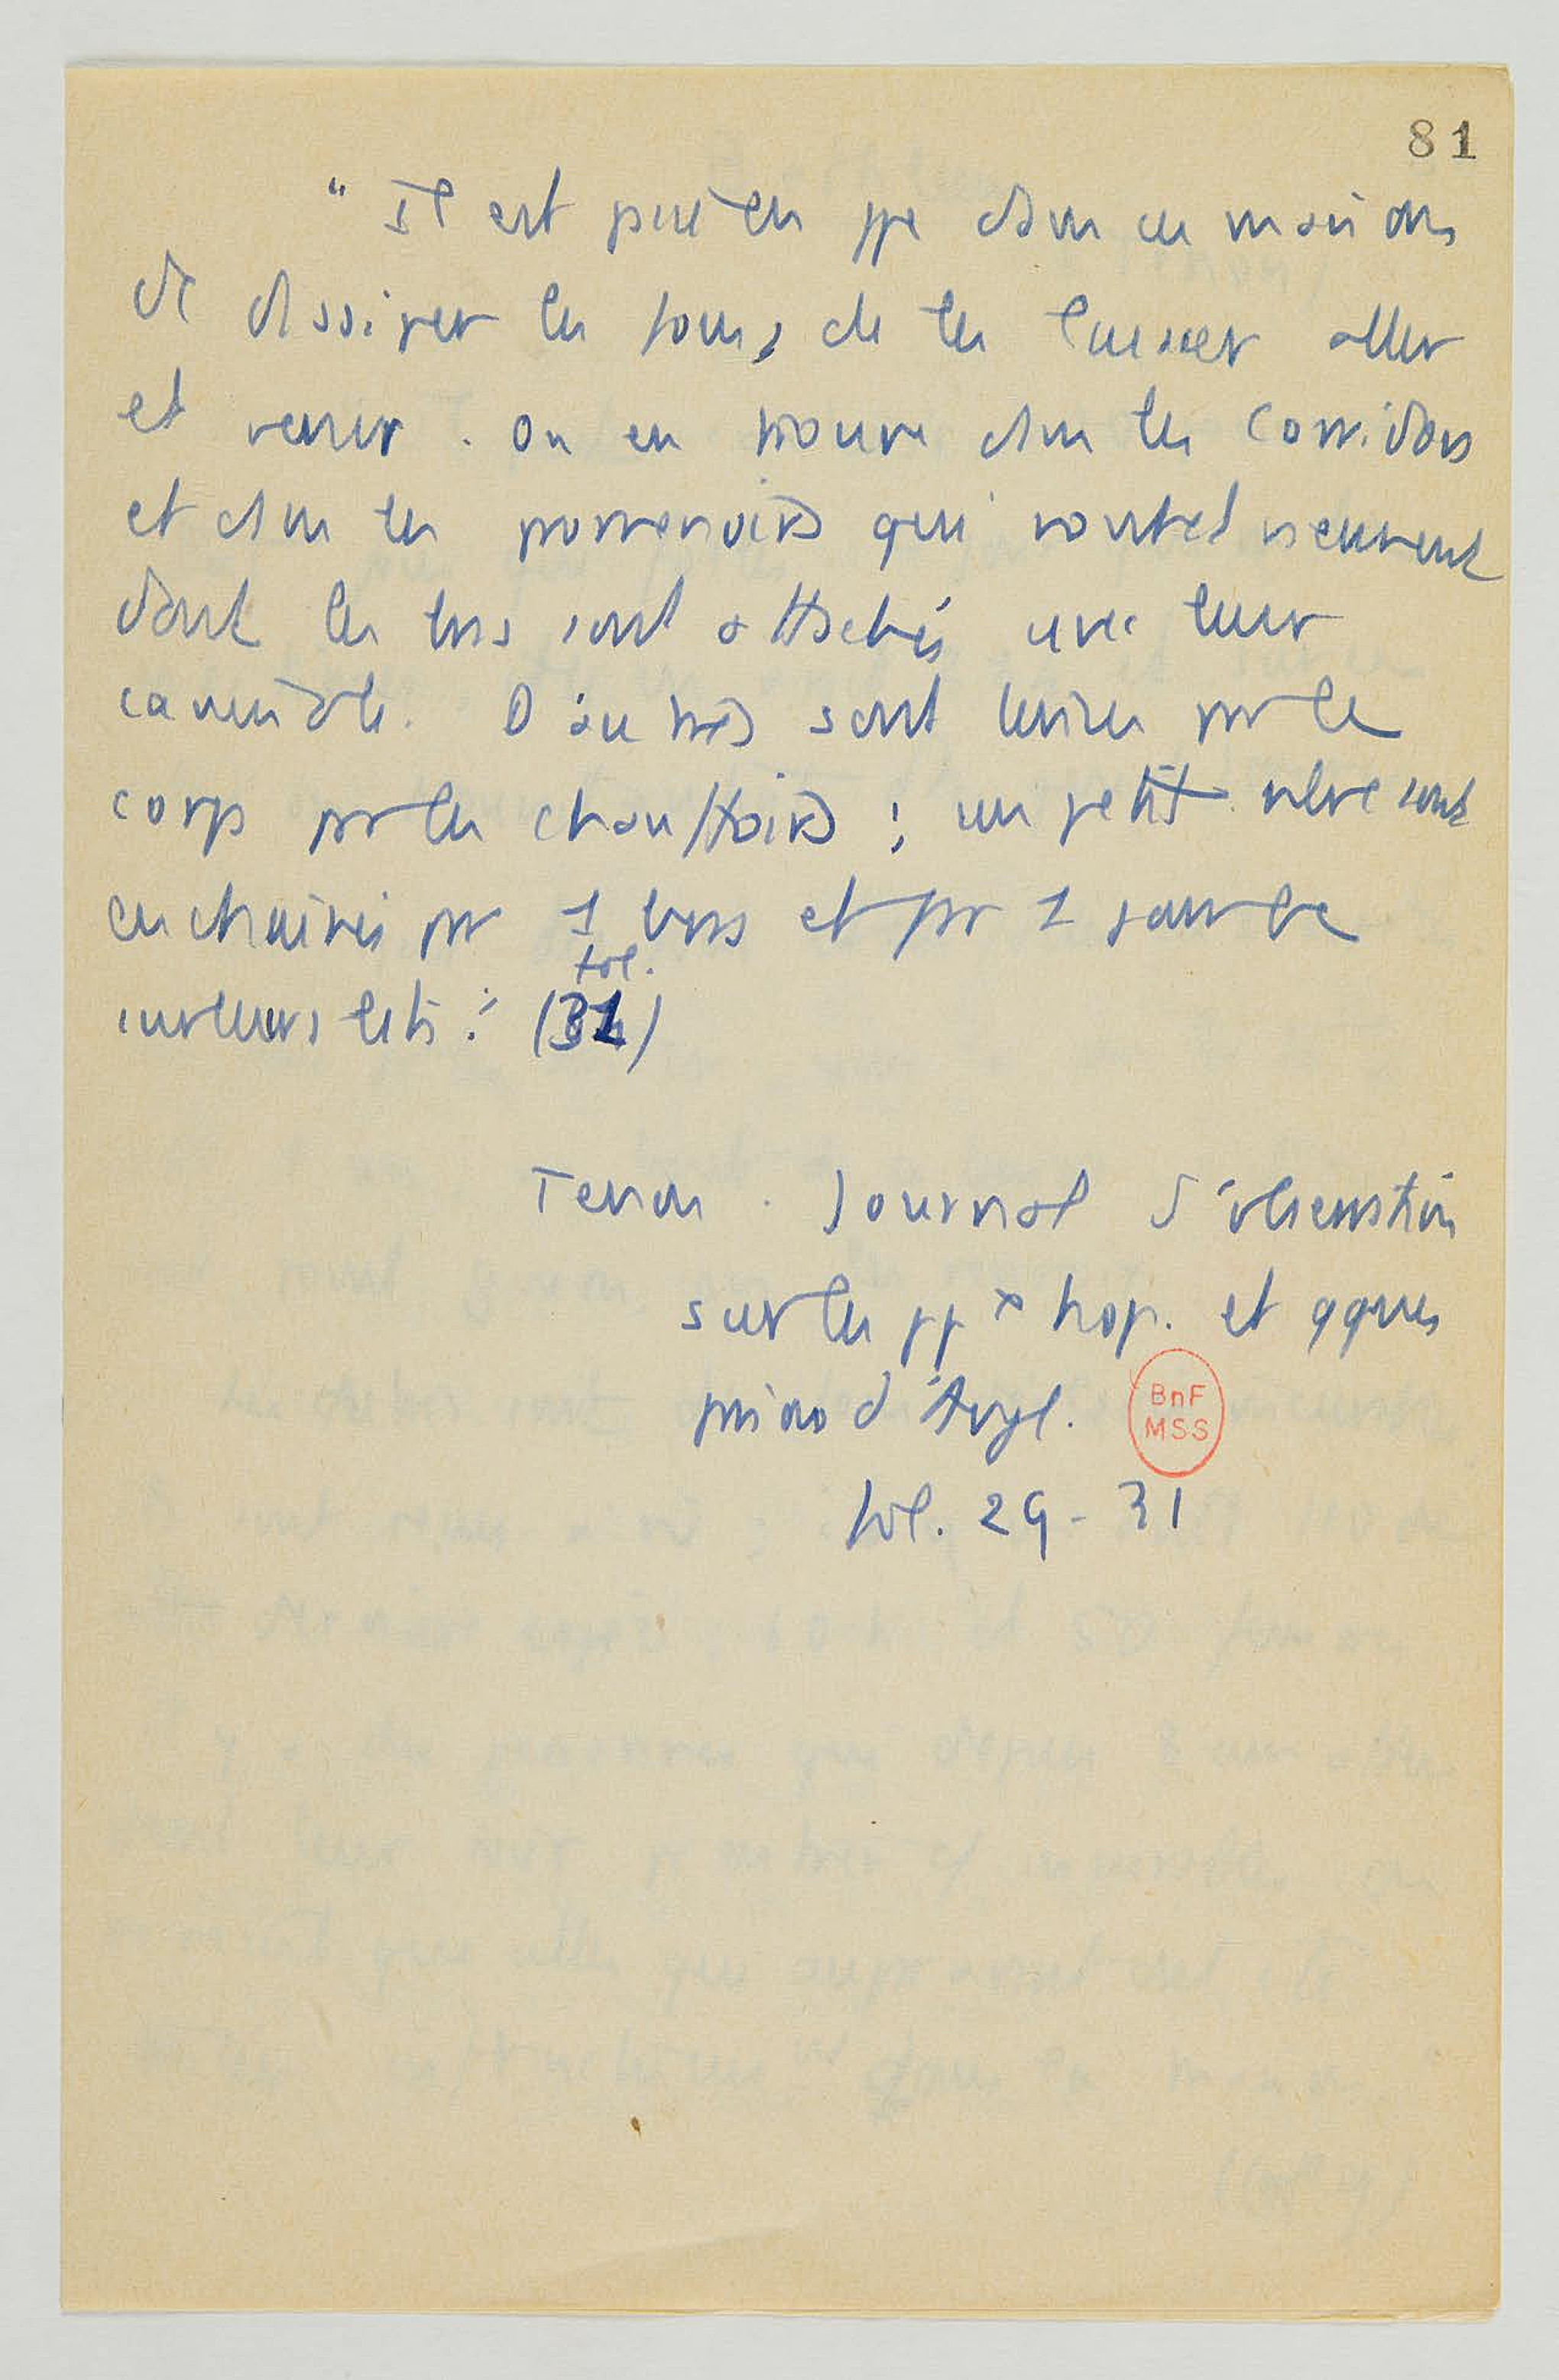 81
" Il est pris en ppe dans ces maisons
de dissiper les fous, de les laisser aller
et venir. On en trouve dans les corridors
et dans les promenoirs qui vont et viennent
dont les bras sont attachés avec leur
camisole. D'autres sont
corps par les chauffoirs ; un petit nbre sont
enchaînés par 1 bras et par 1 jambe
sur leurs lits." (31)
fol.
Tenon. Journal d'observation
sur les ppx hop. et qques
prisons d'Angl.
BnF
MSS
fol. 29-31